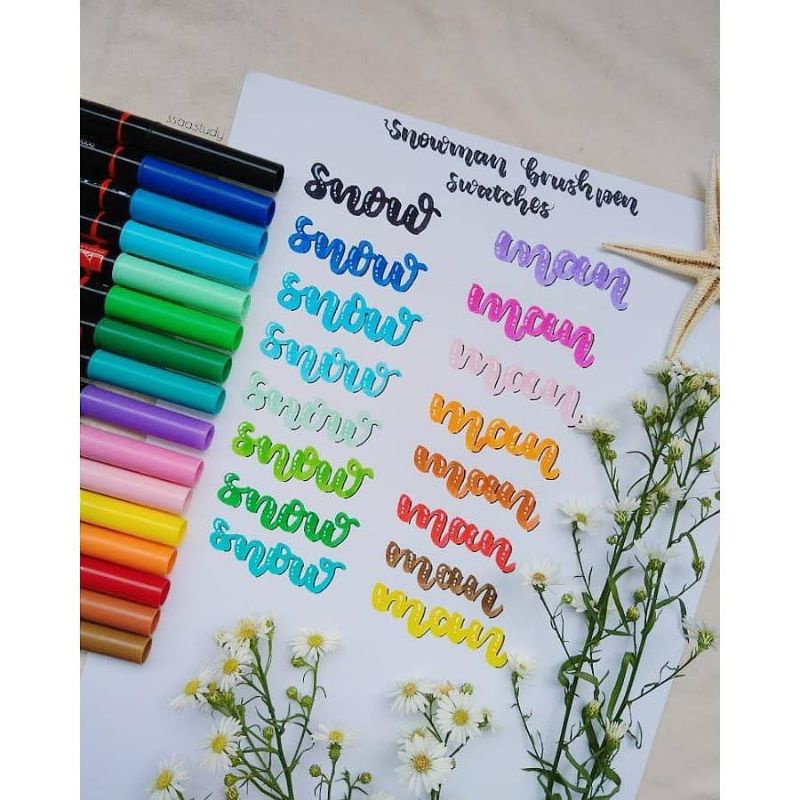 ssaa.study
snowman brush pen
swatches
snow
snow
snow
snow
snow
snow
snow
snow
man
man
man
man
man
man
man
man